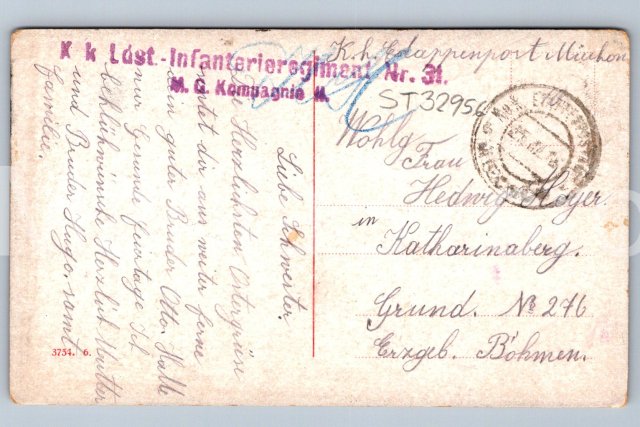 K. k. Etappenpost Miechon
K k Ldst.-Infanterieregiment Nr. 31.
M. G. Kompagnie II.
ST32956
Wohlg
Frau
Hedwig Hoyer.
in
Katharinaberg.
Grund. № 276
Erzgeb. Böhmen.
Liebe Schwester.
Die Herzlichsten Ostergrüse
sendet dir aus weiter ferne
dein guter Bruder Otto.
nur Gesunde feiertage
beglükwünsche Herzlich Mutter
und Bruder Hugo. samt
familie.
3754. 6.